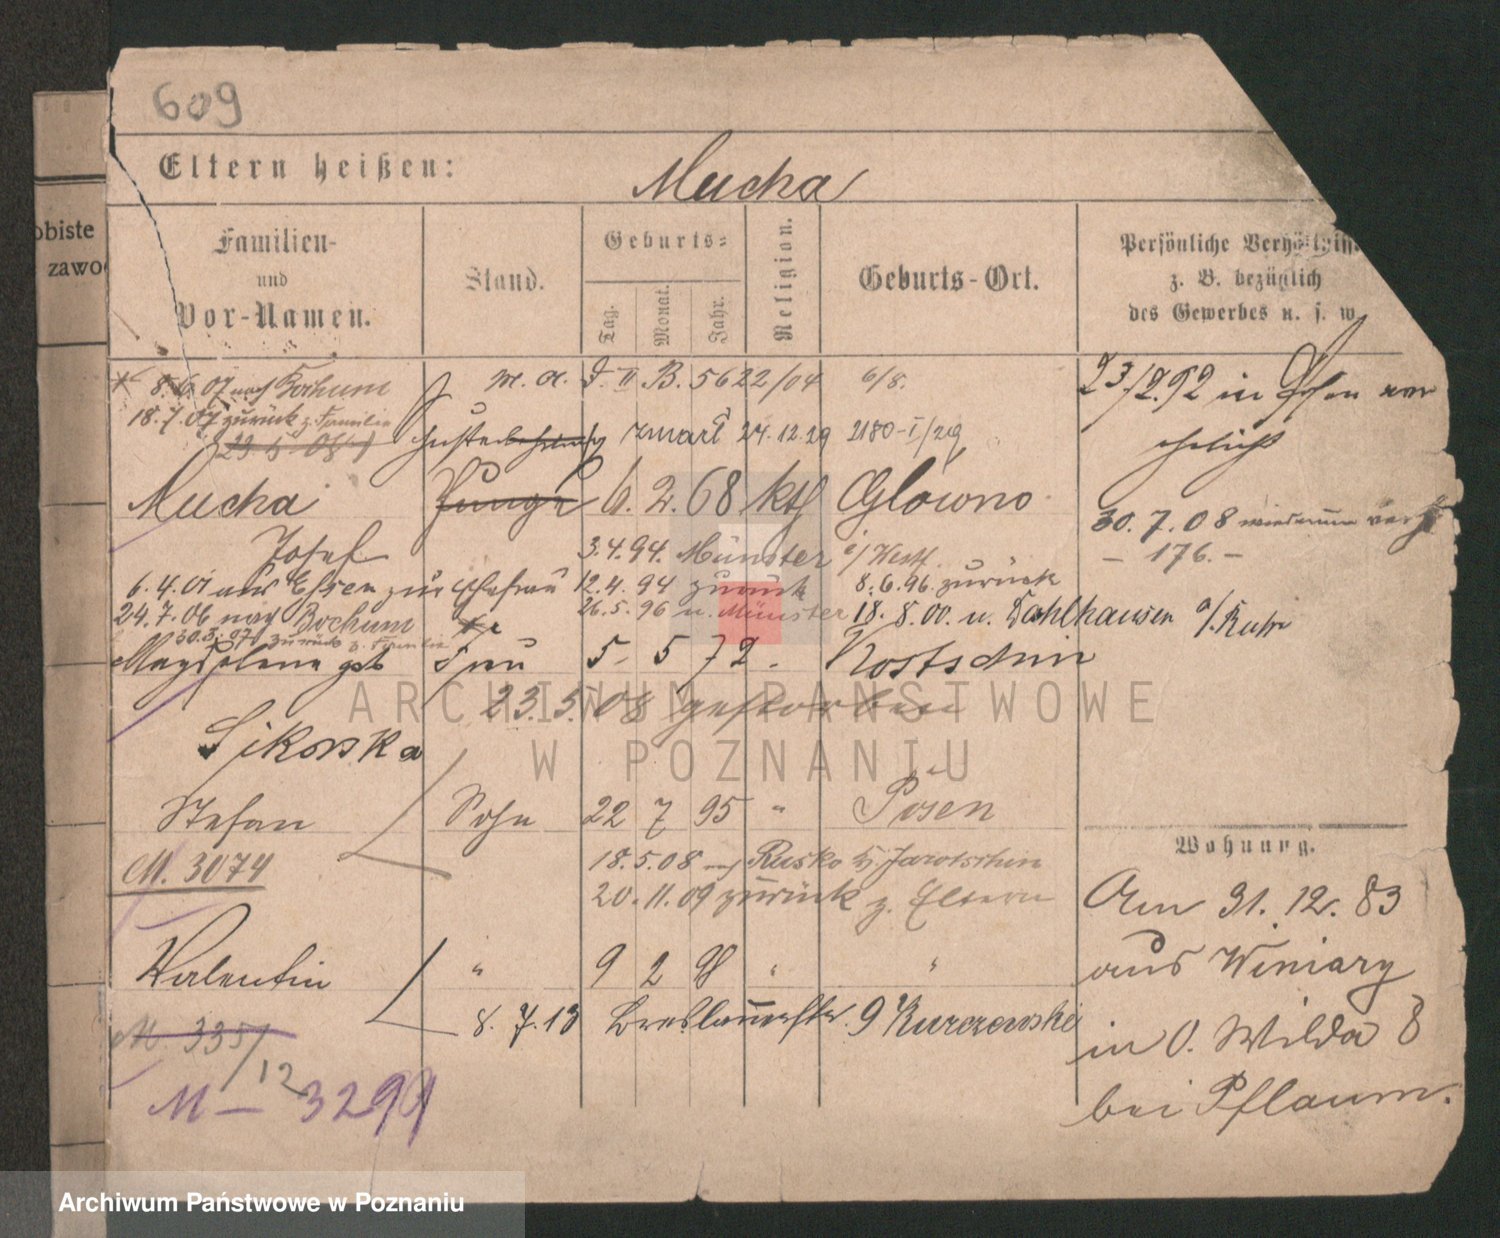 609
Eltern heißen: Mucha
obiste
zawod
Familien-
und
Vor-Namen.
Stand.
Geburts-
Tag.
Monat.
Jahr.
Religion.
Geburts-Ort.
Persönliche Verhältniss
z. B. bezüglich
des Gewerbes u. s. w.
8.6.07 nach Bochum
18.7.07 zurück z. Familie
B. 56 22/04 6/8.
zmarł 24.12.29 2180-I/29
23/2.92 in Posen ver
ehelicht
Mucha Junge 6. 2. 68 kth Glowno
Josef
30.7.08 wiederum verh
- 176. -
3.4.94. Münster i/Westf.
6.4.01 aus Essen zur Ehefrau 12.4.94 zurück 8.6.96. zurück
24.7.06 nach Bochum 26.5.96 n. Münster 18.8.00. n. Dahlhausen a/Ruhr
30.3.07 zurück z. Familie
Magdalena geb Frau 5 5 72 Kostschin
23.5.08 gestorben
Sikorska
Stefan Sohn 22 7 95 " Posen
M. 3074
18.5.08 nach Rusko b/Jarotschin
20.11.09 zurück z. Eltern
Valentin " 9 2 98 " "
8.7.13 Breslauerstr. 9 Kurczewski
M 335/12
M - 3299
Wohnung.
Am 31. 12. 83
aus Winiary
in O. Wilda 8
bei Pflaum.
ARCHIWUM PAŃSTWOWE
W POZNANIU
Archiwum Państwowe w Poznaniu